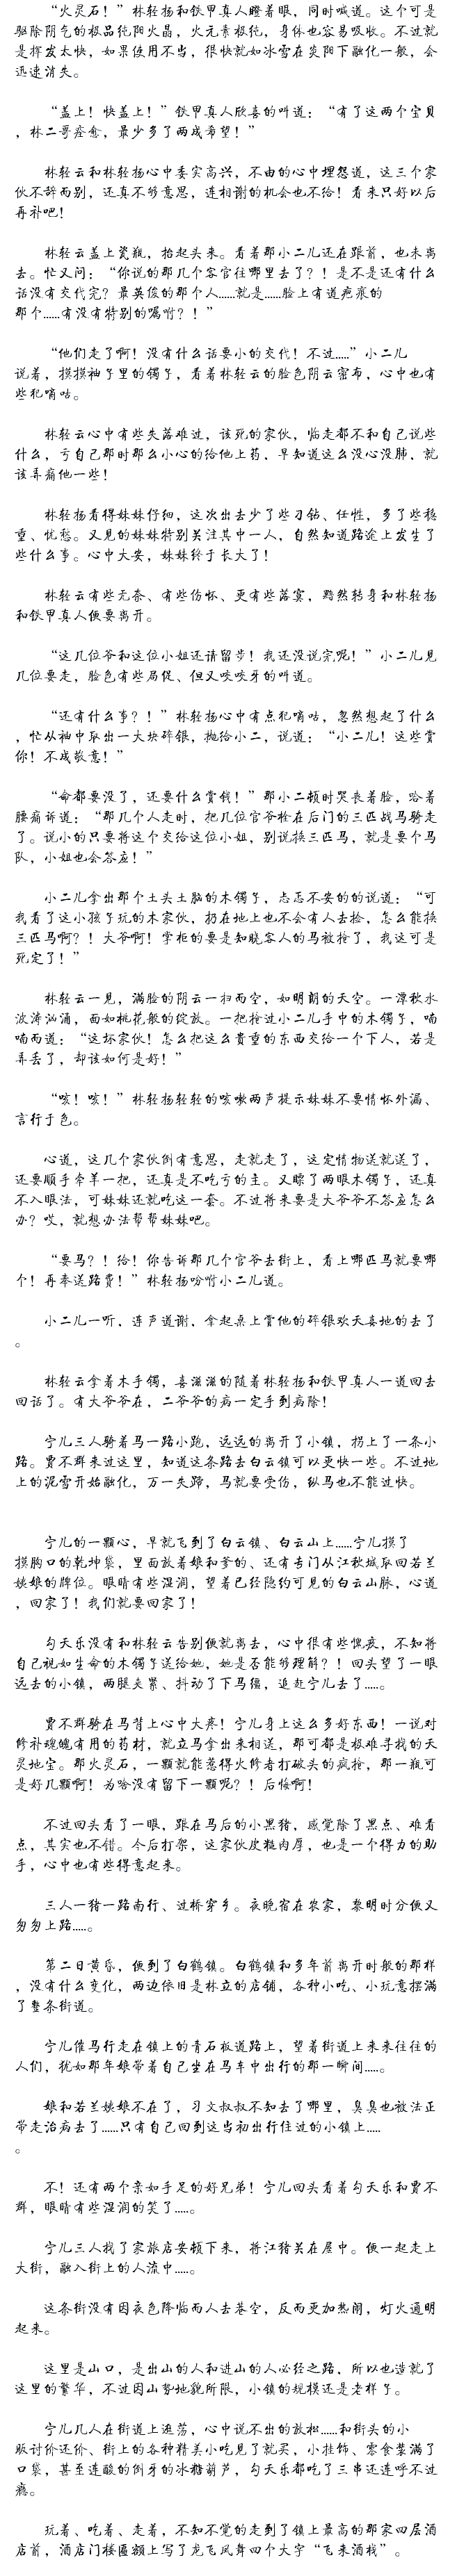 “火灵石！”林轻扬和铁甲真人瞪着眼，同时喊道。这个可是
驱除阴气的极品纯阳火晶，火元素极纯，身体也容易吸收。不过就
是挥发太快，如果使用不当，很快就如冰雪在炎阳下融化一般，会
迅速消失。
“盖上！快盖上！”铁甲真人欣喜的叫道：“有了这两个宝贝
，林二哥痊愈，最少多了两成希望！”
林轻云和林轻扬心中委实高兴，不由的心中埋怨道，这三个家
伙不辞而别，还真不够意思，连相谢的机会也不给！看来只好以后
再补吧！
林轻云盖上瓷瓶，抬起头来。看着那小二儿还在跟前，也未离
去。忙又问：“你说的那几个客官往哪里去了？！是不是还有什么
话没有交代完？最英俊的那个人……就是……脸上有道疤痕的
那个……有没有特别的嘱咐？！”
“他们走了啊！没有什么话要小的交代！不过……”小二儿
说着，摸摸袖子里的镯子，看着林轻云的脸色阴云密布，心中也有
些犯嘀咕。
林轻云心中有些失落难过，该死的家伙，临走都不和自己说些
什么，亏自己那时那么小心的给他上药，早知道这么没心没肺，就
该弄痛他一些！
林轻扬看得妹妹仔细，这次出去少了些刁钻、任性，多了些稳
重、忧愁。又见的妹妹特别关注其中一人，自然知道路途上发生了
些什么事。心中大安，妹妹终于长大了！
林轻云有些无奈、有些伤怀、更有些落寞，黯然转身和林轻扬
和铁甲真人便要离开。
“这几位爷和这位小姐还请留步！我还没说完呢！”小二儿见
几位要走，脸色有些局促、但又咬咬牙的叫道。
“还有什么事？！”林轻扬心中有点犯嘀咕，忽然想起了什么
，忙从袖中取出一大块碎银，抛给小二，说道：“小二儿！这些赏
你！不成敬意！”
“命都要没了，还要什么赏钱！”那小二顿时哭丧着脸，哈着
腰痛诉道：“那几个人走时，把几位官爷栓在后门的三匹战马骑走
了。说小的只要将这个交给这位小姐，别说换三匹马，就是要个马
队，小姐也会答应！”
小二儿拿出那个土头土脑的木镯子，忐忑不安的的说道：“可
我看了这小孩子玩的木家伙，扔在地上也不会有人去捡，怎么能换
三匹马啊？！大爷啊！掌柜的要是知晓客人的马被抢了，我这可是
死定了！”
林轻云一见，满脸的阴云一扫而空，如明朗的天空。一潭秋水
波涛汹涌，面如桃花般的绽放。一把抢过小二儿手中的木镯子，喃
喃而道：“这坏家伙！怎么把这么贵重的东西交给一个下人，若是
弄丢了，却该如何是好！”
“咳！咳！”林轻扬轻轻的咳嗽两声提示妹妹不要情怀外漏、
言行于色。
心道，这几个家伙倒有意思，走就走了，这定情物送就送了，
还要顺手牵羊一把，还真是不吃亏的主。又瞟了两眼木镯子，还真
不入眼法，可妹妹还就吃这一套。不过将来要是大爷爷不答应怎么
办？哎，就想办法帮帮妹妹吧。
“要马？！给！你告诉那几个官爷去街上，看上哪匹马就要哪
个！再奉送路费！”林轻扬吩咐小二儿道。
小二儿一听，连声道谢，拿起桌上赏他的碎银欢天喜地的去了
。
林轻云拿着木手镯，喜滋滋的随着林轻扬和铁甲真人一道回去
回话了。有大爷爷在，二爷爷的病一定手到病除！
宁儿三人骑着马一路小跑，远远的离开了小镇，拐上了一条小
路。贾不群来过这里，知道这条路去白云镇可以更快一些。不过地
上的泥雪开始融化，万一失蹄，马就要受伤，纵马也不能过快。
宁儿的一颗心，早就飞到了白云镇、白云山上……宁儿摸了
摸胸口的乾坤袋，里面放着娘和爹的、还有专门从江秋城取回若兰
姨娘的牌位。眼睛有些湿润，望着已经隐约可见的白云山脉，心道
，回家了！我们就要回家了！
勾天乐没有和林轻云告别便就离去，心中很有些愧疚，不知将
自己视如生命的木镯子送给她，她是否能够理解？！回头望了一眼
远去的小镇，两腿夹紧、抖动了下马缰，追赶宁儿去了……。
贾不群骑在马背上心中大疼！宁儿身上这么多好东西！一说对
修补魂魄有用的药材，就立马拿出来相送，那可都是极难寻找的天
灵地宝。那火灵石，一颗就能惹得火修者打破头的疯抢，那一瓶可
是好几颗啊！为啥没有留下一颗呢？！后悔啊！
不过回头看了一眼，跟在马后的小黑猪，感觉除了黑点、难看
点，其实也不错。今后打架，这家伙皮糙肉厚，也是一个得力的助
手，心中也有些得意起来。
三人一猪一路南行、过桥穿乡。夜晚宿在农家，黎明时分便又
匆匆上路……。
第二日黄昏，便到了白鹤镇。白鹤镇和多年前离开时般的那样
，没有什么变化，两边依旧是林立的店铺，各种小吃、小玩意摆满
了整条街道。
宁儿催马行走在镇上的青石板道路上，望着街道上来来往往的
人们，犹如那年娘带着自己坐在马车中出行的那一瞬间……。
娘和若兰姨娘不在了，习文叔叔不知去了哪里，臭臭也被法正
带走治病去了……只有自己回到这当初出行住过的小镇上……
。
不！还有两个亲如手足的好兄弟！宁儿回头看着勾天乐和贾不
群，眼睛有些湿润的笑了……。
宁儿三人找了家旅店安顿下来，将江猪关在屋中。便一起走上
大街，融入街上的人流中……。
这条街没有因夜色降临而人去巷空，反而更加热闹，灯火通明
起来。
这里是山口，是出山的人和进山的人必经之路，所以也造就了
这里的繁华，不过因山势地貌所限，小镇的规模还是老样子。
宁儿几人在街道上逛荡，心中说不出的放松……和街头的小
贩讨价还价、街上的各种精美小吃见了就买，小挂饰、零食装满了
口袋，甚至连酸的倒牙的冰糖葫芦，勾天乐都吃了三串还连呼不过
瘾。
玩着、吃着、走着，不知不觉的走到了镇上最高的那家四层酒
店前，酒店门楼匾额上写了龙飞凤舞四个大字“飞来酒栈”。